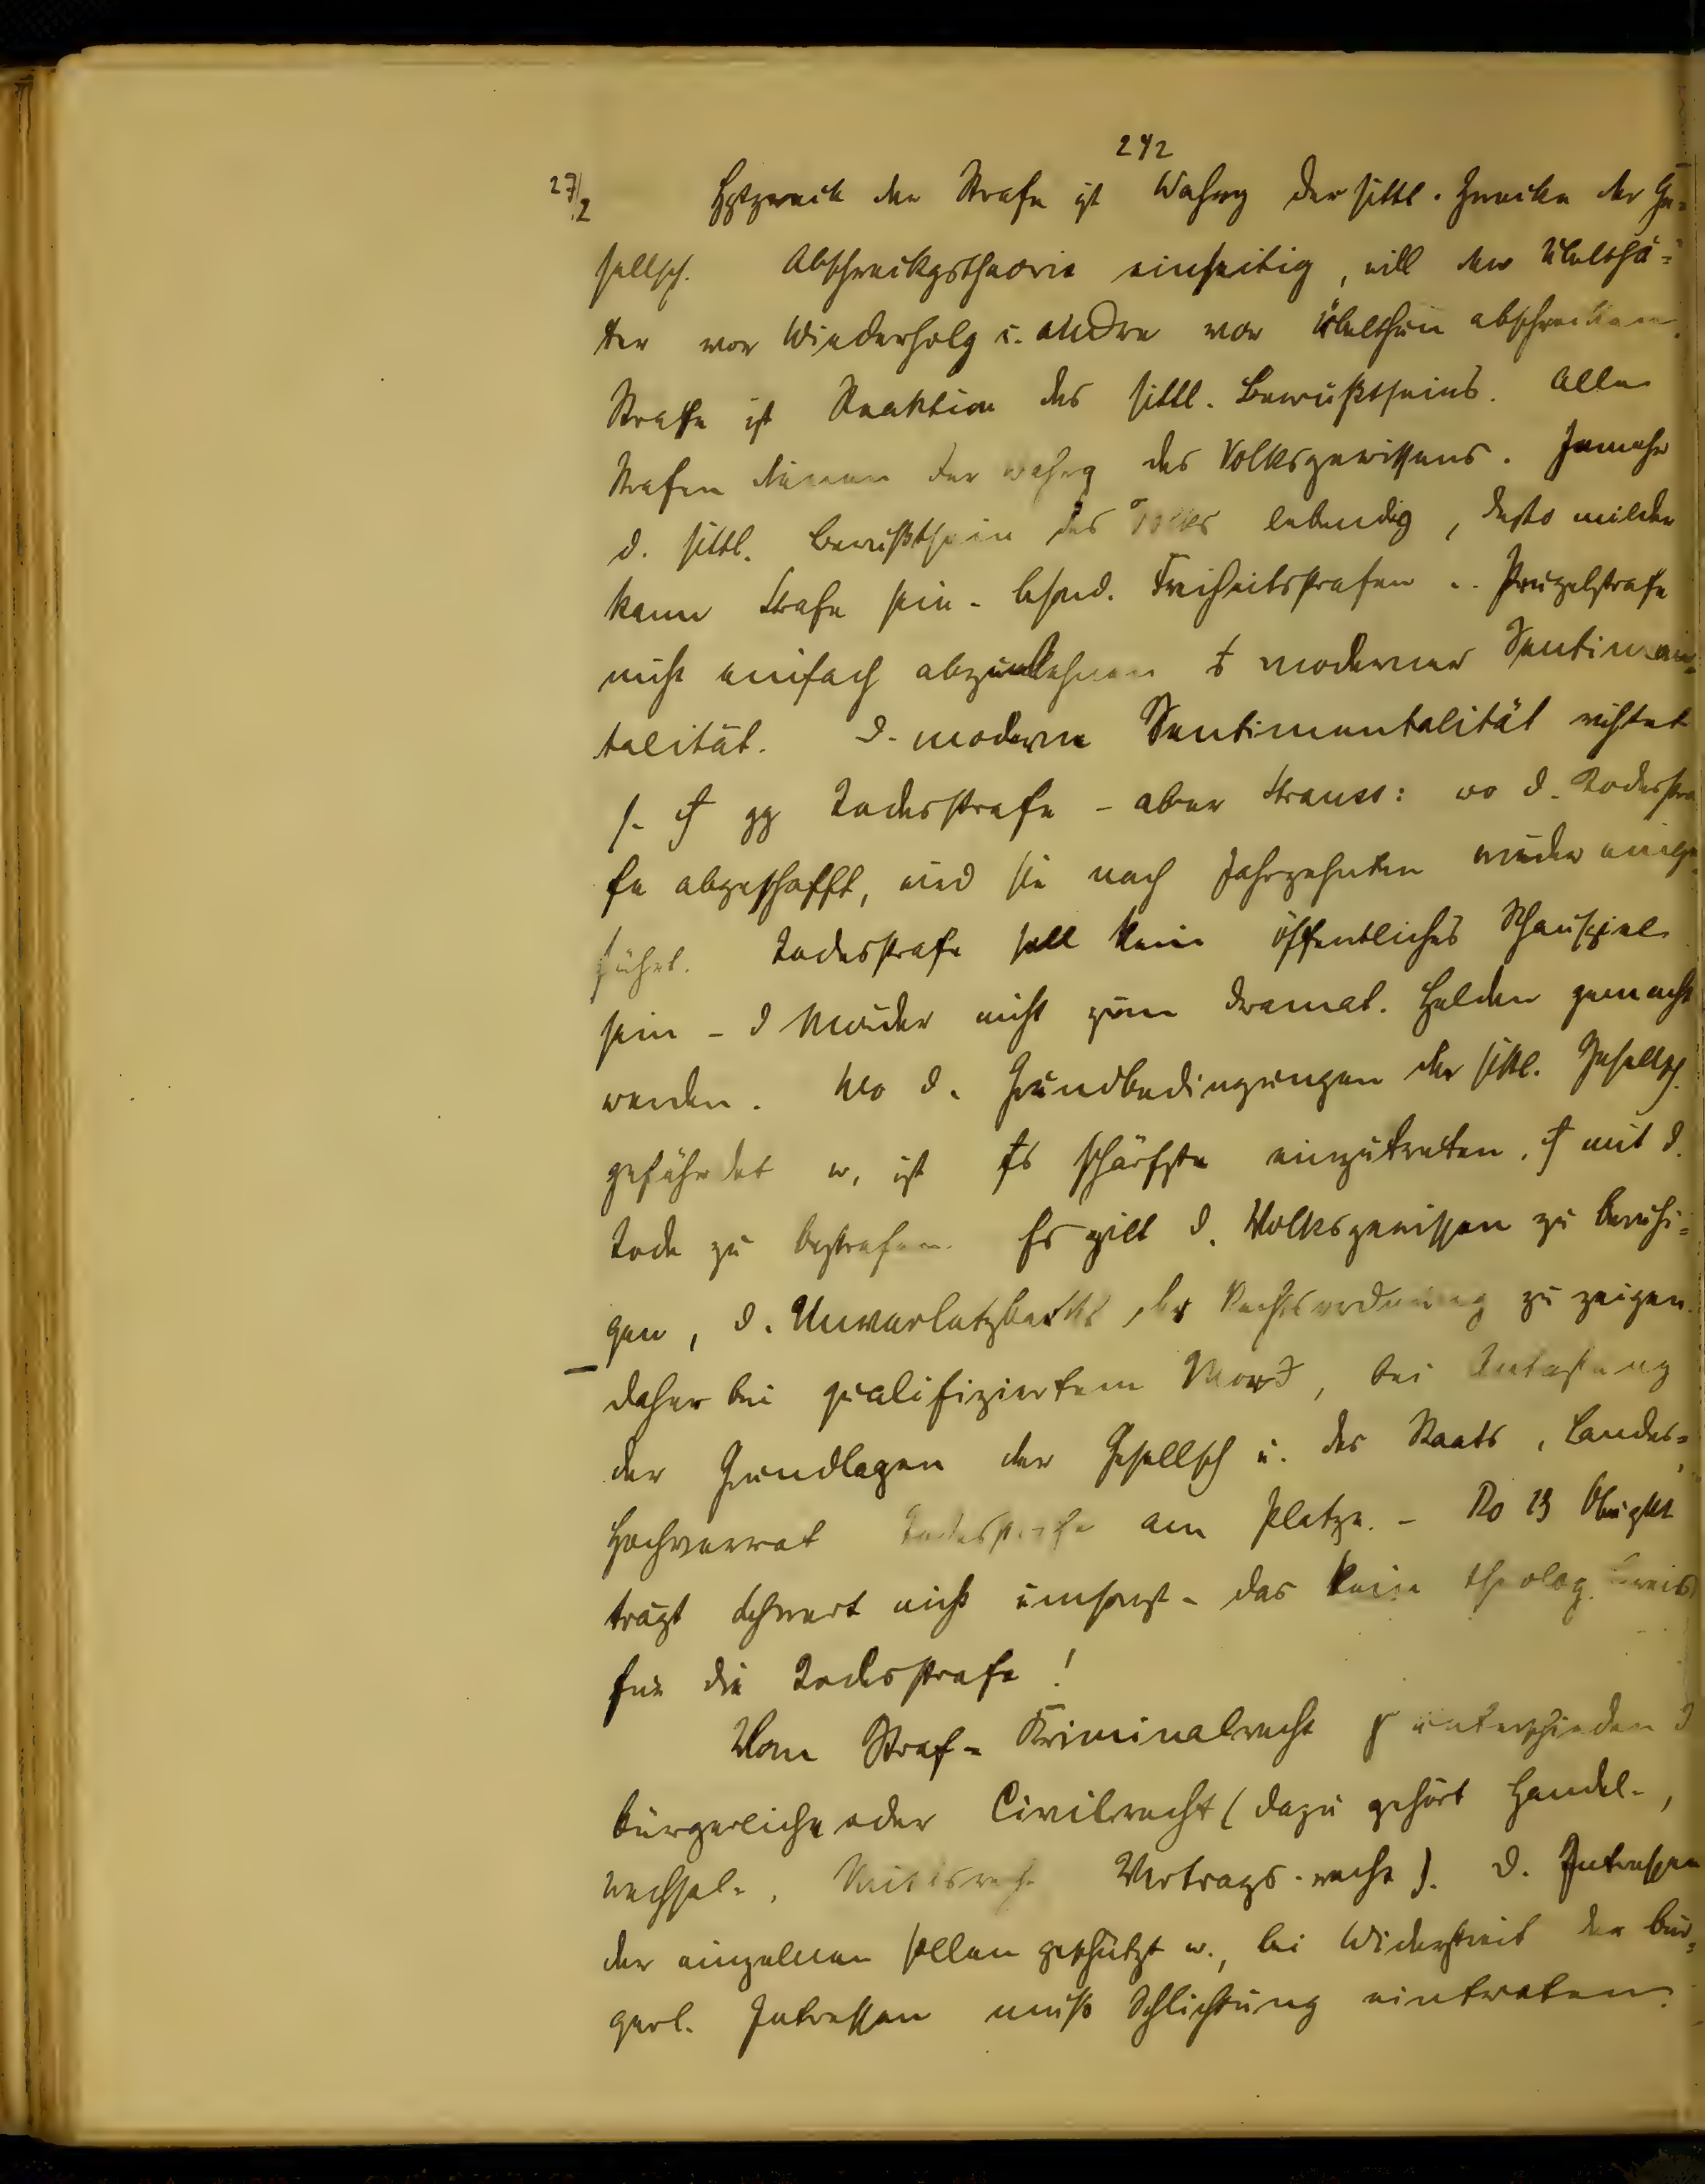 242
27/2 Hptzweck der Strafe ist Wahrg der sittl. Zwecke der Ge-
sellsch. Abschreckgstheorie einseitig, will den Übelthä-
ter vor Wiederholg u. andre vor Übelthun abschrecken.
Strafe ist Reaktion des sittl. Bewußtseins. Alle
Strafen dienen der Wahrg des Volksgewissens. Jemehr
d. sittl. Bewußtsein des Volks lebendig, desto milder
kann Strafe sein - besond. Freiheitsstrafen .. Prügelstrafe
nicht einfach abzulehnen moderner Sentimen-
talität. D. moderne Sentimentalität richtet
s. gg Todesstrafe - aber Strauss: wo d. Todesstra
fe abgeschafft, wird sie nach Jahrzehnten wieder einge
führt. Todesstrafe soll kein öffentliches Schauspiel
sein - d Mörder nicht zum dramat. Helden gemacht
werden. Wo d. Grundbedingungen der sittl. Gesellsch.
gefährdet w, ist schärfste einzutreten, mit d.
Tode zu bestrafen. Es gilt d. Volksgewissen zu beruhi-
gen, d. Unverletzbarkt der Rechtsordnung zu zeigen.
daher bei qualifiziertem Mord, bei Antastung
der Grundlagen der Gesellsch u. des Staats, Landes-
Hochverrat Todesstrafe am Platze. - Ro 13 Obrigkt
trägt Schwert nicht umsonst - das kein theolog. Beweis
für die Todesstrafe!
Vom Straf- Kriminalrecht unterschieden d
bürgerliche oder Civilrecht (dazu gehört Handel-,
Wechsel-, Vertrags-recht). D. Interessen
der einzelnen sollen geschützt w., bei Widerstreit der bür-
gerl. Interessen muß Schlichtung eintreten.